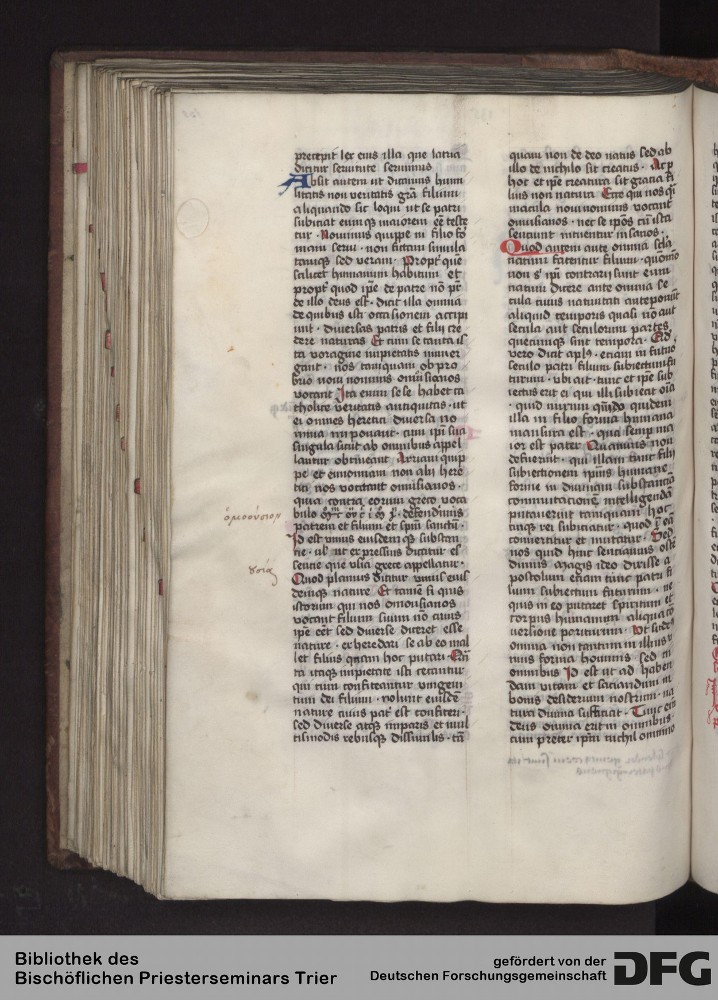 precepit lex eius illa que latria
dicitur servitute servimus
Absit autem ut dicamus humi
litatis non veritatis gra filium
aliquando sic loqui ut se patri
subiciat eumque maiorem esse teste
tur. Novimus quippe in filio for
mam servi. non fictam simula
tamque sed veram. Propter que
scilicet humanum habitum et
propter quod ipse de patre non pater
de illo deus est. dicit illa omnia
de quibus isti occasionem accipi
unt. diversas patris et filii cre
dere naturas Et cum se tanta is
ta voragine impietatis immer
gant. nos tamquam ob pro
brio novi nominis omusianos
vocant Ita enim se se habet ca
tholice veritatis antiquitas. ut
ei omnes heretici diversa no
mina imponant. cum ipsi sua
singula sicut ab omnibus appel
lantur obtineant Arriani quip
pe et eunomiani non alii here
tici nos vocant omusianos.
quia contra eorum greco voca
bulo defendimus
patrem et filium et spm sanctu.
Id est unius eiusdemque substan
tie. ul ut expressius dicatur es
sentie que usia grece appellatur.
Quod planius dicitur unius eius
demque nature Et tamen si quis
istorum qui nos omousianos
vocant filium suum non cuius
ipse esset sed diverse diceret esse
nature. exheredari se ab eo mal
let filius quam hoc putari.
ta itaque impietate isti cecantur
qui cum confiteantur unigeni
tum dei filium. nolunt eiusdem
nature cuius pater est confiteri.
sed diverse atque imparis et mul
tis modis rebusque dissimilis. tam
ὁμοούσιον
quam non de deo natus sed ab
illo de nichilo sit creatus.
hoc et ipse creatura sit gratia fi
lius non natura Ecce qui nos quasi
macula novi nominis vocant
omusianos. nec se ipsos cum ista
sentiunt intuentur insanos.
Quod autem ante omnia secula
natum fatentur filium. quomodo
non sibi ipsi contrarii sunt cum
natum dicere ante omnia se
cula cuius nativitati anteponunt
aliquid temporis quasi non aut
secula aut seculorum partes
quecumque sint tempora. Id
vero dicit apls. etiam in futuro
seculo patri filium subiectum fu
turum. ubi ait. tunc et ipse sub
iectus erit ei qui illi subiecit oia
. quid mirum quando quidem
illa in filio forma humana
mansura est. qua semper ma
ior est pater Quamvis non
defuerint. qui illam tunc filii
subiectionem ipsius humane
forme in divinam substanciam
commutacionem intelligendam
putaverint tamquam hoc
cuique rei subiciatur. quod in eam
convertitur et mutatur. Sed
nos quid hinc senciamus osten
dimus magis ideo dixisse a
postolum etiam tunc patri fi
lium subiectum futurum. ne
quis in eo putaret spiritum et
corpus humanum aliqua con
versione periturum. Ut sit deus
omnia non tantum in illius
nius forma hominis sed in
omnibus Id est ut ad haben
dam vitam et saciandum in
bonis desiderium nostrum. na
tura divina sufficiat. Tunc enim
deus omnia erit in omnibus.
cum preter ipsum nichil omnino
Bibliothek des
Bischöflichen Priesterseminars Trier
gefördert von der
Deutschen Forschungsgemeinschaft
DFG